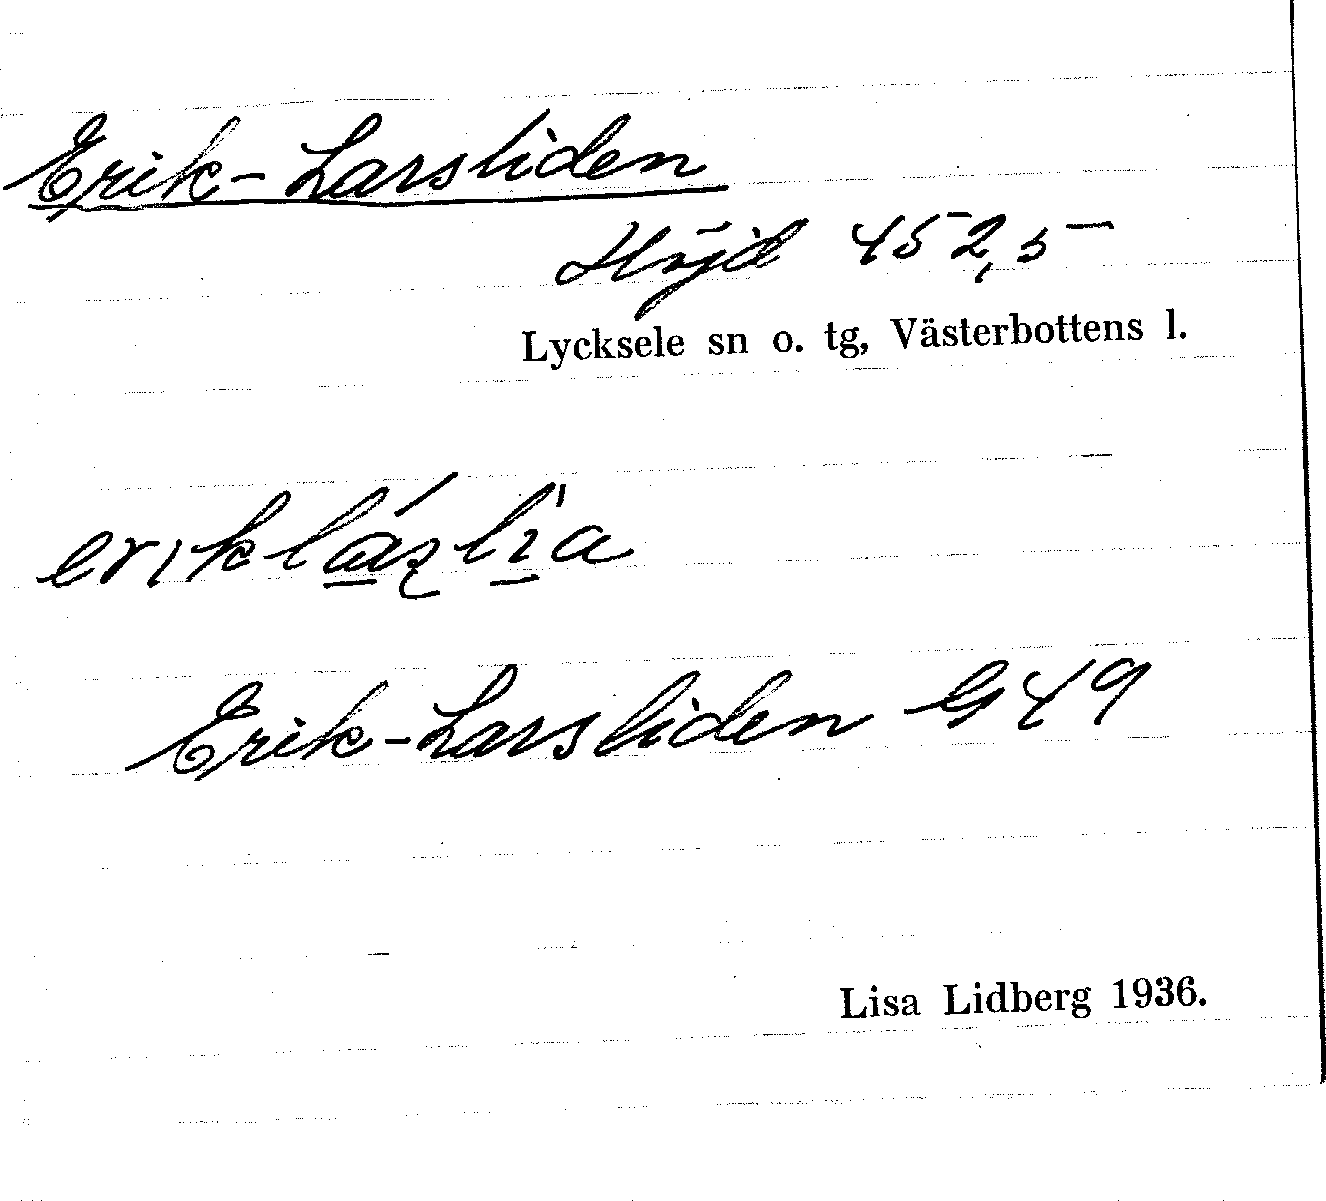 Erik-Larsliden
Höjd 452,5
Lycksele sn o. tg, Västerbottens l.
Erik-Larsliden G49
Lisa Lidberg 1936.